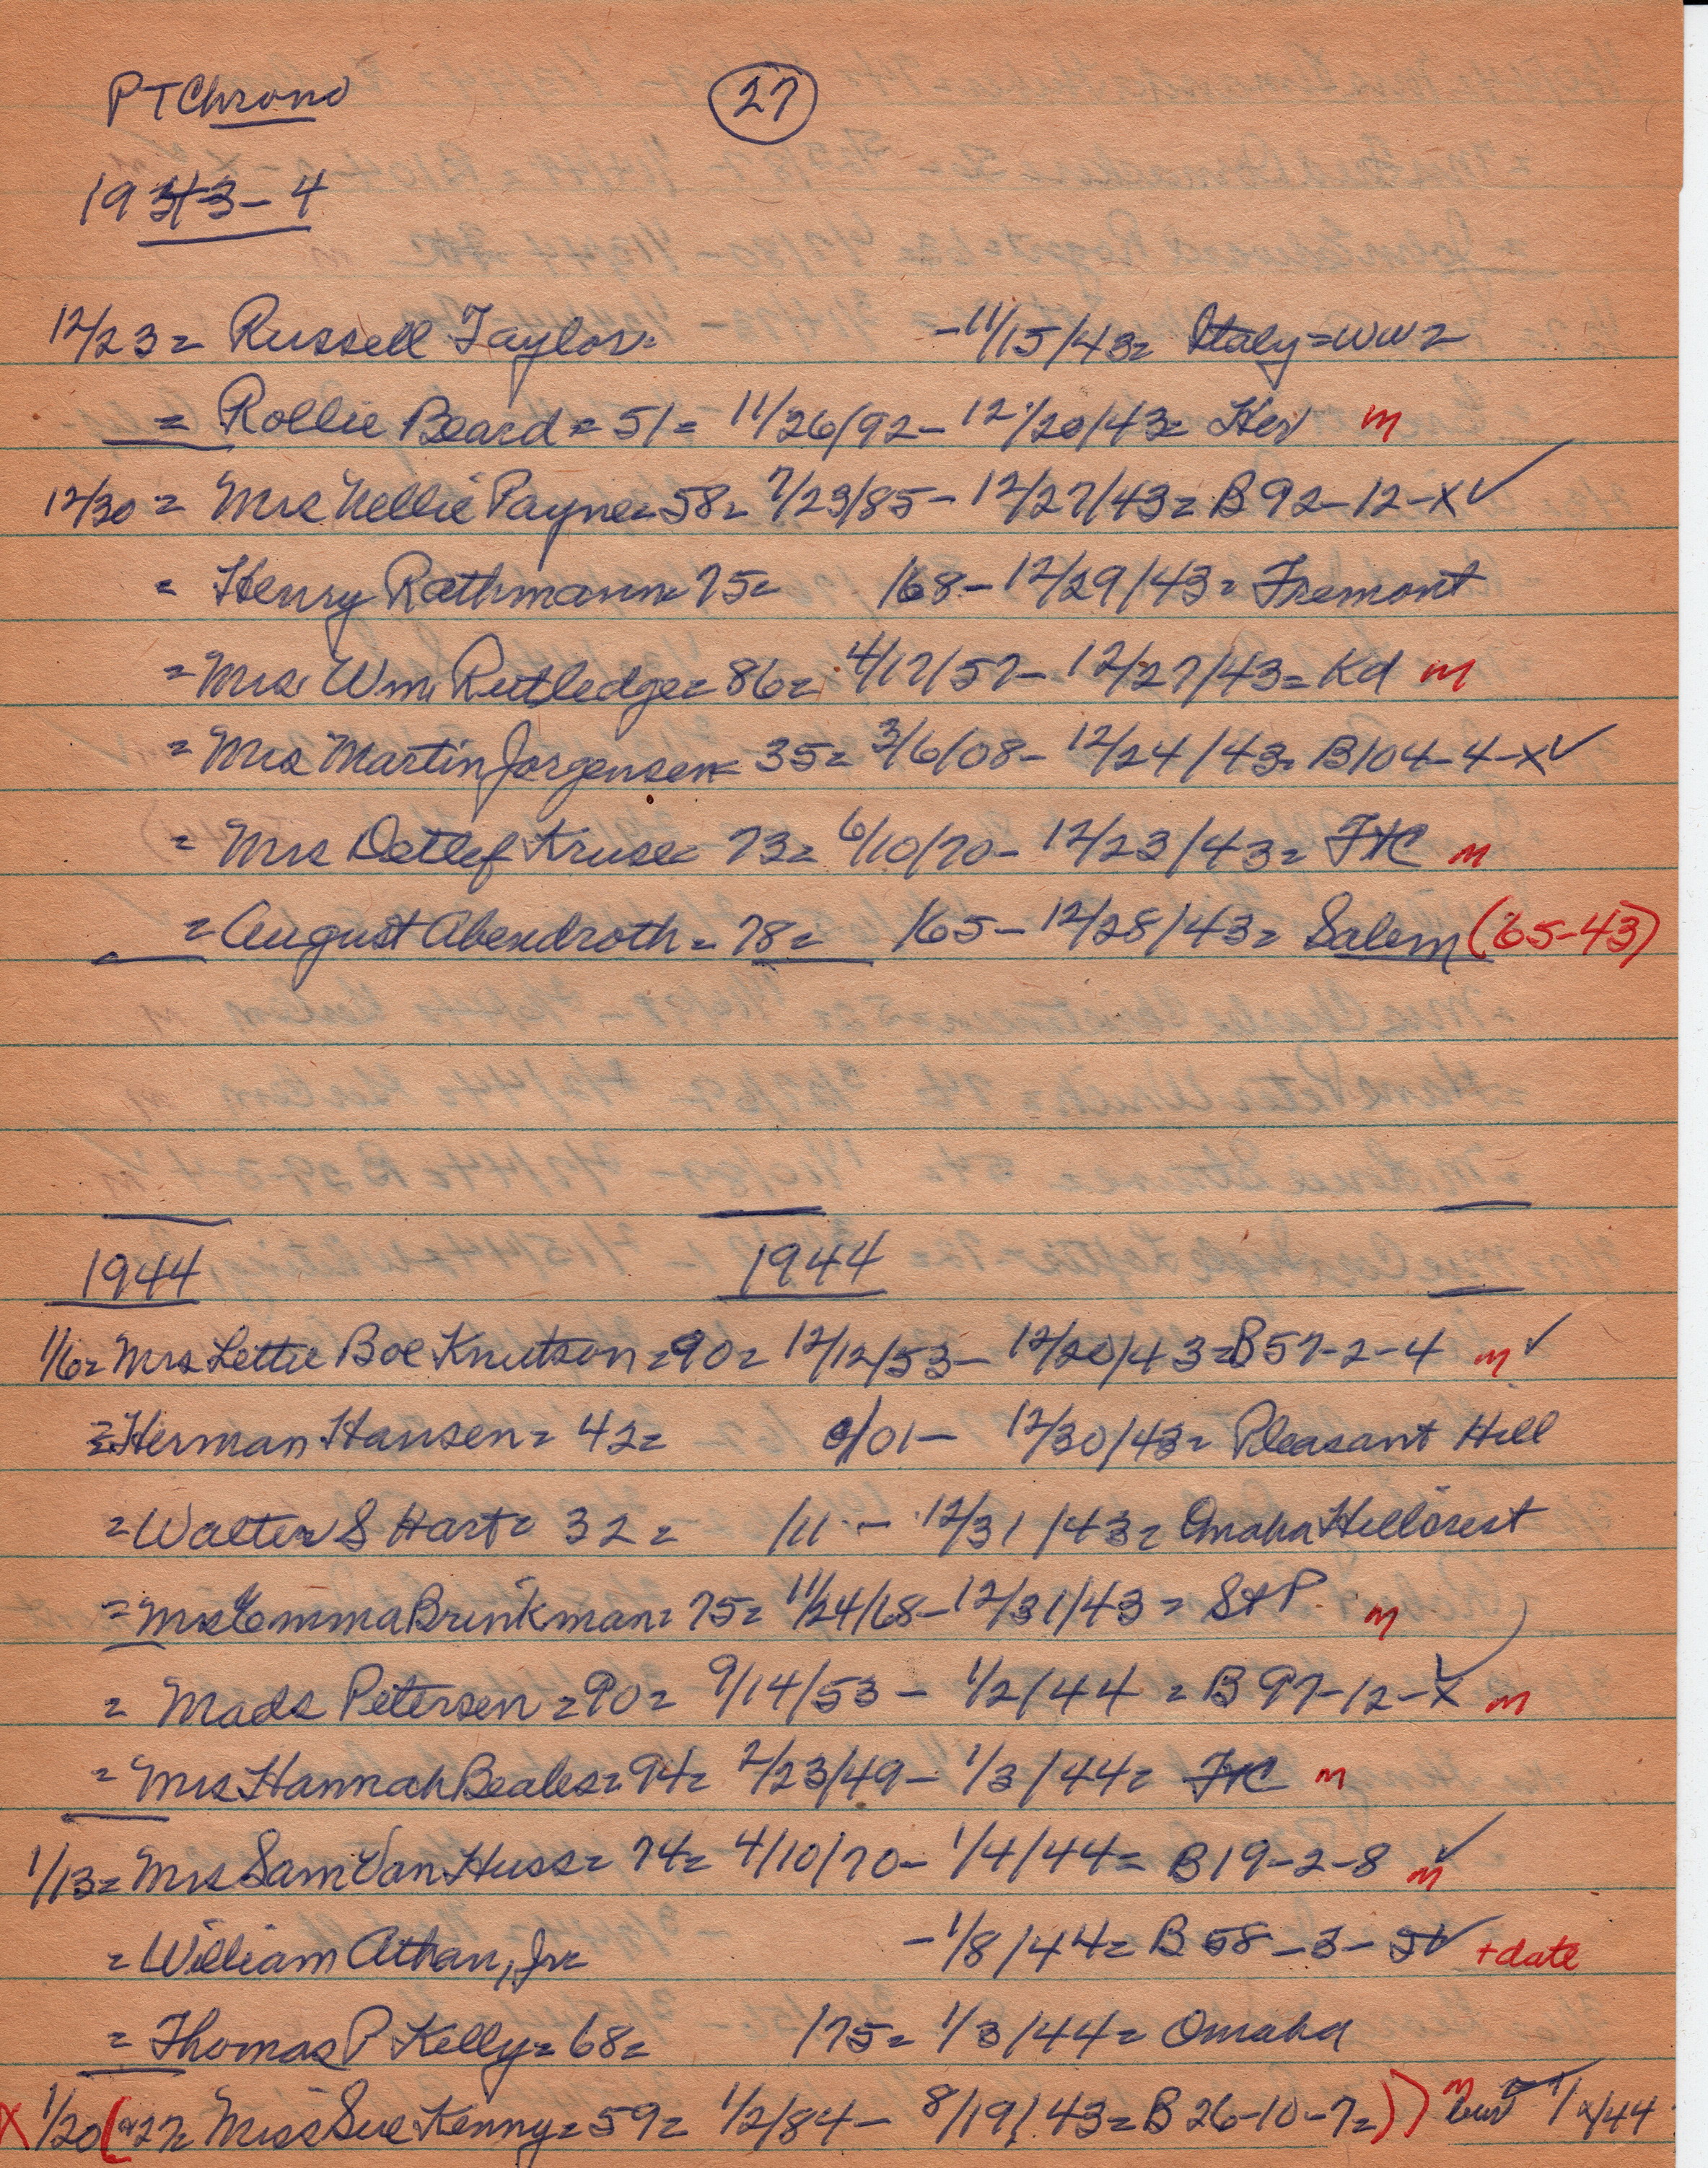 PT Chrono 27
1943-4
12/23= Russell Taylor= -11/15/43= Italy=WW2
= Rollie Beard=51= 11/26/92- 12/20/43= Her m
12/30= Mrs Nellie Payne=58= 7/23/85- 12/27/43= B92-12-X✓
= Henry Rathmann=75= /68- 12/29/43= Fremont
=Mrs. Wm. Rutledge=86= 4/17/57- 12/27/43= Kd m
=Mrs Martin Jorgensen=35= 3/6/08- 12/24/43= B104-4-X✓
= Mrs Detlef Kruse=73= 6/10/70- 12/23/43= FtC m
=August Abendroth=78= /65- 12/28/43= Salem (65-43)
1944 1944
1/6= Mrs Lettie Boe Knutson=90= 12/12/53- 12/20/43=B57-2-4 m✓
=Herman Hansen=42= /01- 12/30/43= Pleasant Hill
=Walter S Hart= 32= /11- 12/31/43= Omaha Hillcrest
=Mrs Emma Brinkman=75= 11/24/68- 12/31/43= StP m
= Mads Petersen=90= 9/14/53- 1/2/44= B97-12-X✓ m
= Mrs Hannah Beales=94= 2/23/49- 1/3/44= FtC m
1/13= Mrs Sam Van Huss=74= 4/10/70- 1/4/44= B19-2-8 m✓
=William Athan, Jr= -1/8/44= B 58-3-5✓ +date
= Thomas P Kelly=68= /75= 1/3/44= Omaha
X 1/20 ( Miss Sue Kenny=59= 1/2/84- 8/19/43=B26-10-7=) m 1/ /44